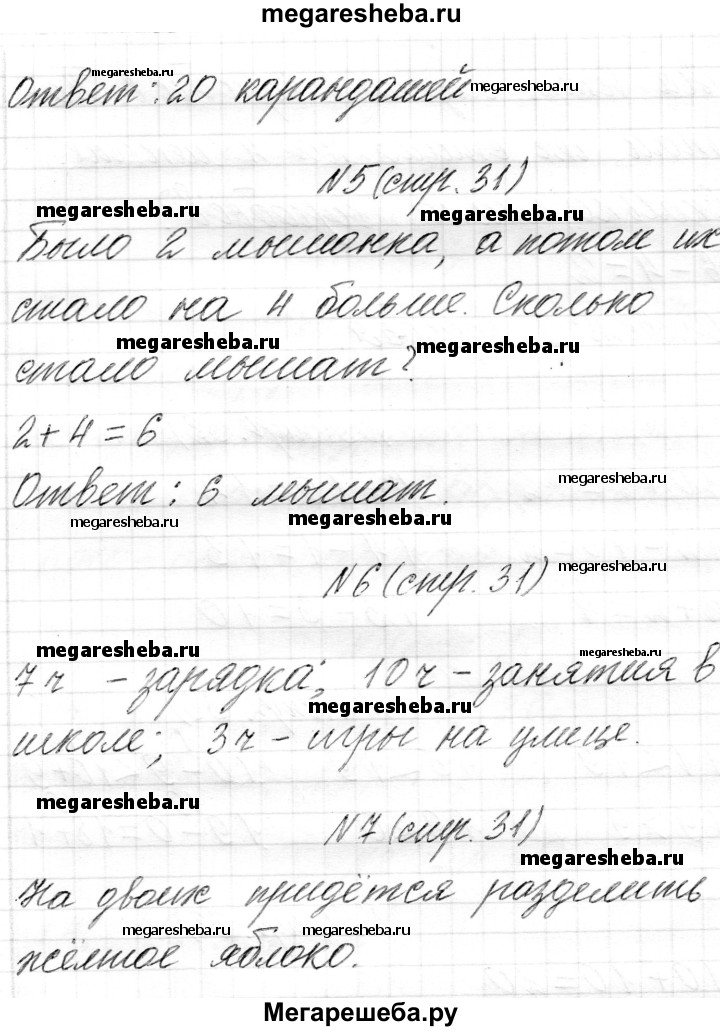 megaresheba.ru
megaresheba.ru
Ответ: 20 карандашей
megaresheba.ru
N5 (стр. 31)
megaresheba.ru
megaresheba.ru
Было 2 мышонка, а потом их
стало на 4 больше. Сколько
megaresheba.ru
megaresheba.ru
стало мышат?
2 + 4 = 6
Ответ: 6 мышат.
megaresheba.ru
megaresheba.ru
megaresheba.ru
N6 (стр. 31)
megaresheba.ru
megaresheba.ru
megaresheba.ru
7 ч - зарядка; 10 ч - занятия в
megaresheba.ru
школе; 3 ч - игры на улице.
megaresheba.ru
N7 (стр. 31)
megaresheba.ru
На двоих придётся разделить
megaresheba.ru
megaresheba.ru
жёлтое яблоко.
Мегарешеба.ру